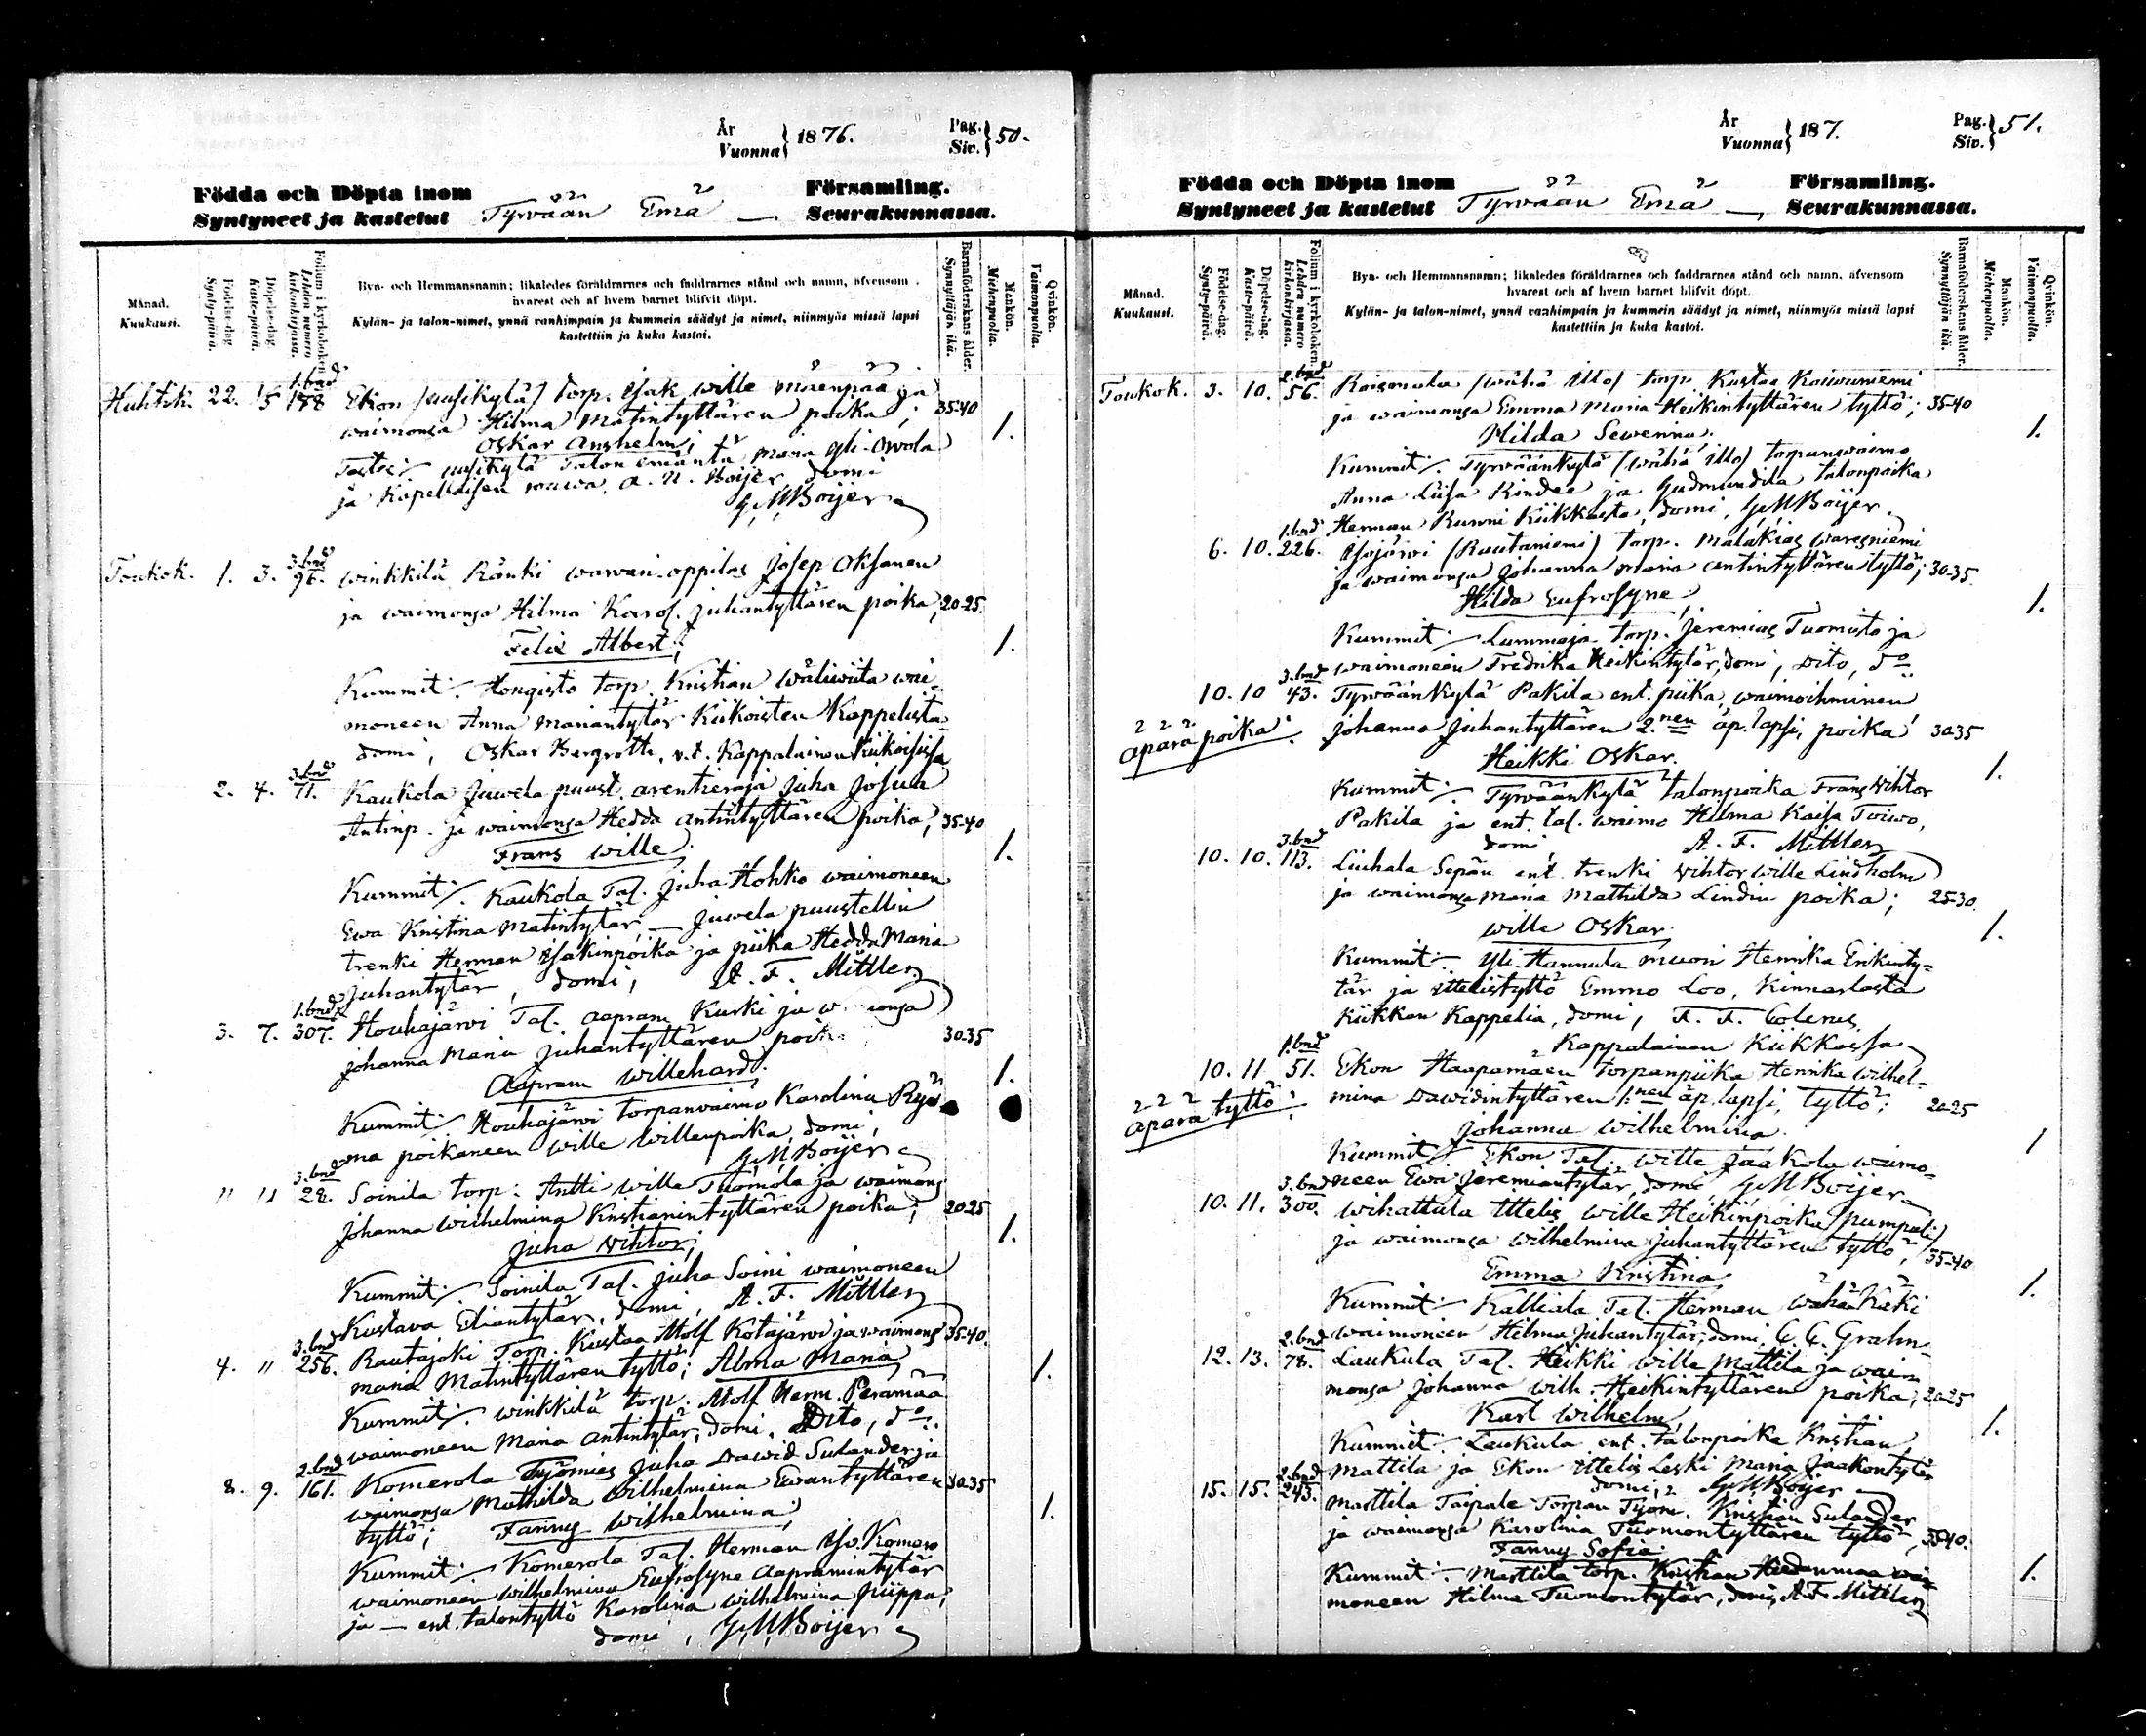 År
Vuonna } 1876.
Pag.
Siv. } 50.
Födda och Döpta inom
Syntyneet ja kastetut
Tyrvään Emä —
Församling.
Seurakunnassa.
Månad.
Kuukausi.
Födelse-dag.
Synty-päivä.
Döpelse-dag.
Kaste-päivä.
Folium i kyrkoboken.
Lehden numero kirkonkirjassa.
Bya- och Hemmansnamn; likaledes föräldrarnes och faddrarnes stånd och namn, äfvensom
hvarest och af hvem barnet blifvit döpt.
Kylän- ja talon-nimet, ynnä vanhimpain ja kummein säädyt ja nimet, niinmyös missä lapsi
kastettiin ja kuka kastoi.
Barnaföderskans ålder.
Synnyttäjän ikä.
Mankön.
Miehenpuolta.
Qvinkön.
Vaimonpuolta.
1. bnd
Huhtik. 22. 15 188 Ekon (uusikylä) torp. Isak Wille Mäenpää ja
waimonsa Hilma Matintyttären poika; 35-40
Oskar Anshelm; 1.
uusikylä Talon emäntä Maria Yli-Owola
ja Kapellaisen rouwa A. U. Boijer domi
G. M. Boijer
3. bnd
Toukok. 1. 3. 96. Winkkilä Ränki wawari-oppilas Josep Oksanen
ja waimonsa Hilma Karol. Juhantyttären poika, 20-25.
Felix Albert; 1.
Kummit:. Hongisto torp. Kristian Wäliwiita wai-
moneen Anna Mariantytär Kiikoisten Kappelista
domi, Oskar Bergroth, v.t. Kappalainen Kiikoisissa
3. bnd
2. 4. 71. Kaukola Juwela puust. arentieraja Juha Josua
Antinp. ja waimonsa Hedda Antintyttären poika, 35-40
Frans Wille. 1.
Kummit:. Kaukola Tal. Juha Hohko waimoneen
Ewa Kristina Matintytär, — Juwela puustellin
trenki Herman Isakinpoika ja piika Hedda Maria
Juhantytär, domi, A. F. Mittler
1. bnd
3. 7. 307. Houhajärvi Tal. Aapram Kurki ja w..onsa
Johanna Maria Juhantyttären poika 30-35
Aapram Willehard. 1.
Kummit:. Houhajärvi torpanvaimo Karolina
poikaneen Wille Willenpoika, domi,
G. M. Boijer
3. bnd
" 11 28. Soinila torp. Antti Wille Tuomola ja waimons
Johanna Wilhelmina Kristianintyttären poika; 20-25
Juha Vihtor; 1.
Kummit:. Soinila Tal. Juha Soini waimoneen
Kustava Eliantytär, domi, A. F. Mittler
3. bnd
4. " 256. Rautajoki Torp. Kustaa Adolf Kotajärvi ja waimons 35-40.
Maria Matintyttären tyttö; Alma Maria 1.
Kummit:. Winkkilä torp. Adolf Herm. Perämää
waimoneen Maria Antintytär, domi. Dito, do.
2. bnd
8. 9. 161. Komerola Työmies Juha Dawid Sulander ja
waimonsa Mathilda Wilhelmina Ewantyttären 30-35
tyttö; Fanny Wilhelmina; 1.
Kummit:. Komerola Tal. Herman Iso-Komero
waimoneen Wilhelmina Eufrosyne Aapramintytär
ja — ent. talontyttö Karolina Wilhelmina Piippo,
domi, G. M. Boijer
År
Vuonna } 187.
Pag.
Siv. } 51.
Födda och Döpta inom
Syntyneet ja kastetut
Tyrvään Emä —
Församling.
Seurakunnassa.
Månad.
Kuukausi.
Födelse-dag.
Synty-päivä.
Döpelse-dag.
Kaste-päivä.
Folium i kyrkoboken.
Lehden numero kirkonkirjassa.
Bya- och Hemmansnamn; likaledes föräldrarnes och faddrarnes stånd och namn, äfvensom
hvarest och af hvem barnet blifvit döpt.
Kylän- ja talon-nimet, ynnä vanhimpain ja kummein säädyt ja nimet, niinmyös missä lapsi
kastettiin ja kuka kastoi.
Barnaföderskans ålder.
Synnyttäjän ikä.
Mankön.
Miehenpuolta.
Qvinkön.
Vaimonpuolta.
2. bnd
Toukok. 3. 10. 56. Roismala (wähä Illo) torp. Kustaa Koiwuniemi
ja waimonsa Emma Maria Heikintyttären tyttö; 35-40
Hilda Sewerina. 1.
Kummit:. Tyrväänkylä (wähä Illo) torpanwaimo
Anna Liisa Rindee ja Gudmundila talonpoika
Herman Runni Kiikkasta, domi, G. M. Boijer
1. bnd
6. 10. 226. Isojärwi (Rautaniemi) Torp. Malakias Waresniemi
ja waimonsa Johanna Maria Antintyttären tyttö; 30-35.
Hilda Eufrosyne, 1.
Kummit:. Lummaja torp. Jeremias Tuomisto ja
waimoneen Fredrika Heikintytär, domi, Dito, do
3. bnd
10. 10 43. Tyrväänkylä Pakila ent. piika, waimoihminen
äpärä poika: Johanna Juhantyttären 2.nen äp. lapsi, poika! 30-35
Heikki Oskar. 1.
Kummit:. Tyrväänkylä talonpoika Frans Vihtor
Pakila ja ent. tal. waimo Hilma Kaisa Toiwo,
domi A. F. Mittler
3. bnd
10. 10. 113. Liuhala Sepän ent. trenki Vihtor Wille Lindholm
ja waimonsa Maria Mathilda Lindin poika; 25-30.
Wille Oskar. 1.
Kummit:. Yli-Hannula muori Henrika Erikinty-
tär ja ittelistyttö Emma Loo, Kinnarlasta
Kiikkan Kappelia, domi, F. F. Colerus,
Kappalainen Kiikkassa
1. bnd
10. 11 51. Ekon Haapamäen torpanpiika Henrika Wilhel-
äpärä tyttö: mina Dawidintyttären 1:nen äp. lapsi, tyttö; 20-25
Johanna Wilhelmina. 1
Kummit:. Ekon Tal. Wille Jaakola waimo-
neen Ewa Jeremiantytär, domi G. M. Boijer
3. bnd
10. 11. 300. Wihattula Ittelis Wille Heikinpoika (pumpuli)
ja waimonsa Wilhelmina Juhantyttären tyttö, 35-40
Emma Kristina 1.
Kummit:. Kalliala Tal. Herman Wähä-Käki
waimoneen Hilma Juhantytär, domi, C. C. Grahn
2. bnd
12. 13. 78. Laukula Tal. Heikki Wille Mattila ja wai-
monsa Johanna Wilh. Heikintyttären poika; 20-25
Karl Wilhelm, 1.
Kummit:. Laukula ent. talonpoika Kristian
Mattila ja Ekon Ittelis Leski Maria Jaakontytär
domi, G. M. Boijer
2. bnd
15. 15. 243. Marttila Taipale Torpan Työm. Kristian Sulander
ja waimonsa Karolina Tuomontyttären tyttö, 35-40.
Fanny Sofia. 1.
Kummit:. Marttila torp. Kristian Hiedanmaa wai-
moneen Hilma Tuomontytär, domi, A. F. Mittler